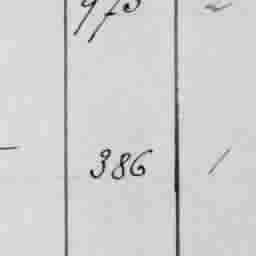 973 2
386 1